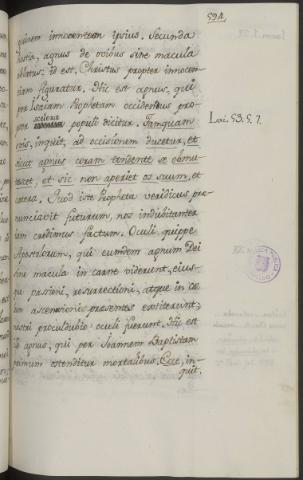 594.
innocentem ipsius. Secunda
hostia, agnus de ovibus sine macula
oblatus; id est, Christus propter innocen-
tiam figuratur. Hic est agnus, qui
per Isaiam Prophetam occidendus pro
scelere
populi dicitur. Tamquam
ovis, inquit, ad occisionem ducetur, et
sicut agnus coram tondente se obmu-
tescet, et sic non aperiet os suum, et
cetera. Quod iste Propheta veridicus pre-
nunciavit futurum, nos indubitanter
iam credimus factum. Oculi quippe
Apostolorum, qui eumdem agnum Dei
sine macula in carne viderunt, eius-
que passioni, resurrectioni, atque in ce-
lum ascensioni presentes extiterunt,
nostri proculdubio oculi fuerunt. Hic est
agnus, qui per Joannem Baptistam
primum ostenditur mortalibus. Ecce, in-
quit,
Isai. 53. 5. 7.